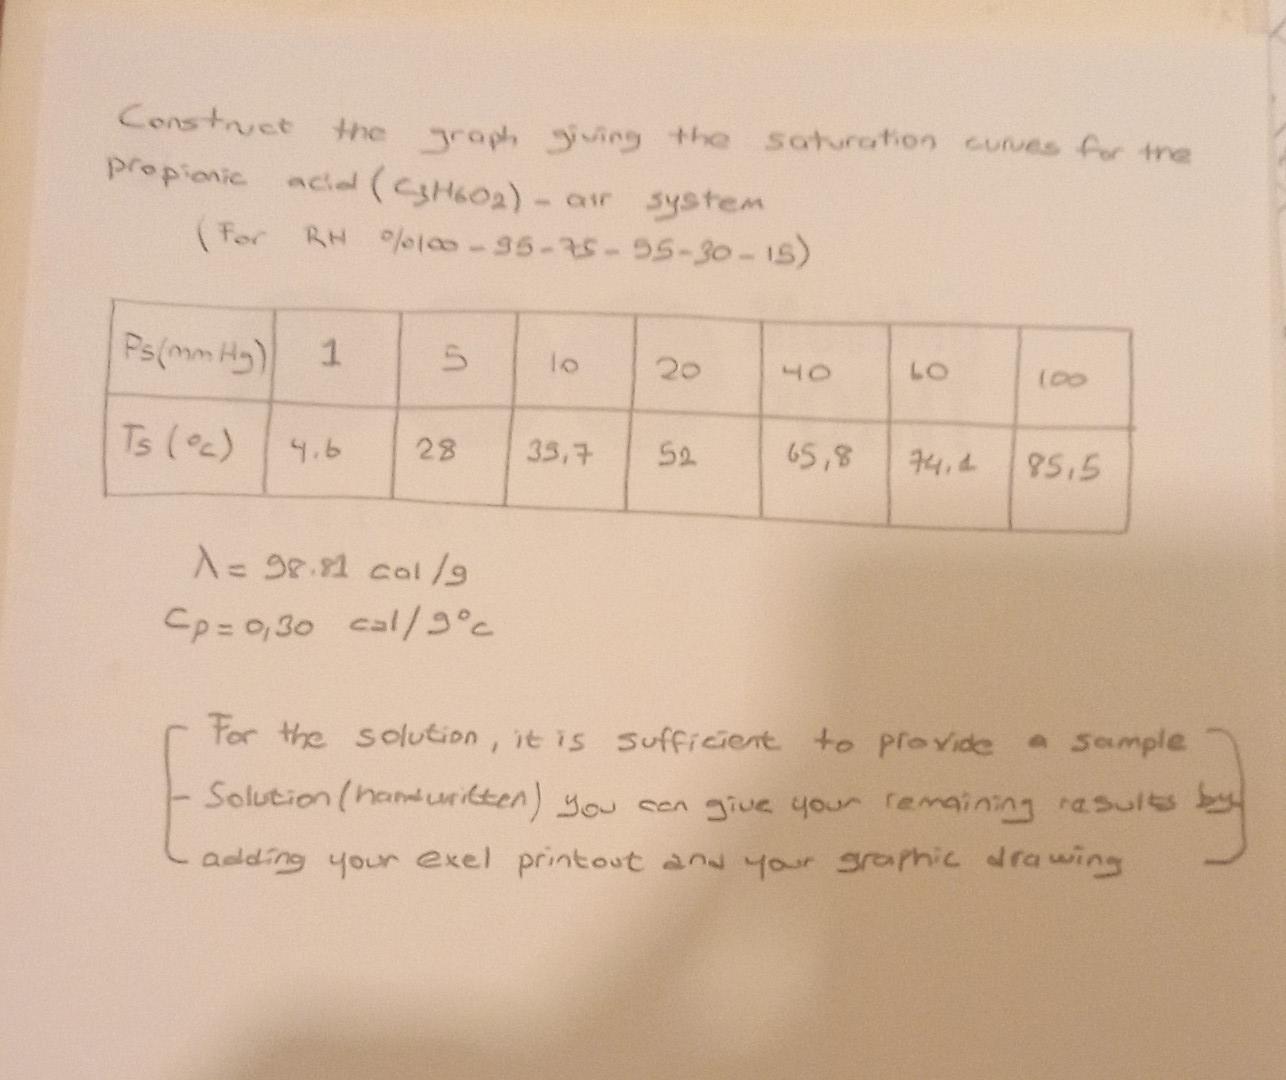 Construct the graph giving the saturation curves for the
propionic acid (C3H6O2) - air system
(For RH %100 - 95 - 75 - 55 - 30 - 15)
Ps(mmHg) 1 5 10 20 40 60 100
Ts (°c) 4.6 28 39,7 52 65,8 74,1 85,5
λ = 98.81 cal/g
Cp = 0,30 cal/g°c
For the solution, it is sufficient to provide a sample
- Solution (handwritten) you can give your remaining results by
adding your exel printout and your graphic drawing